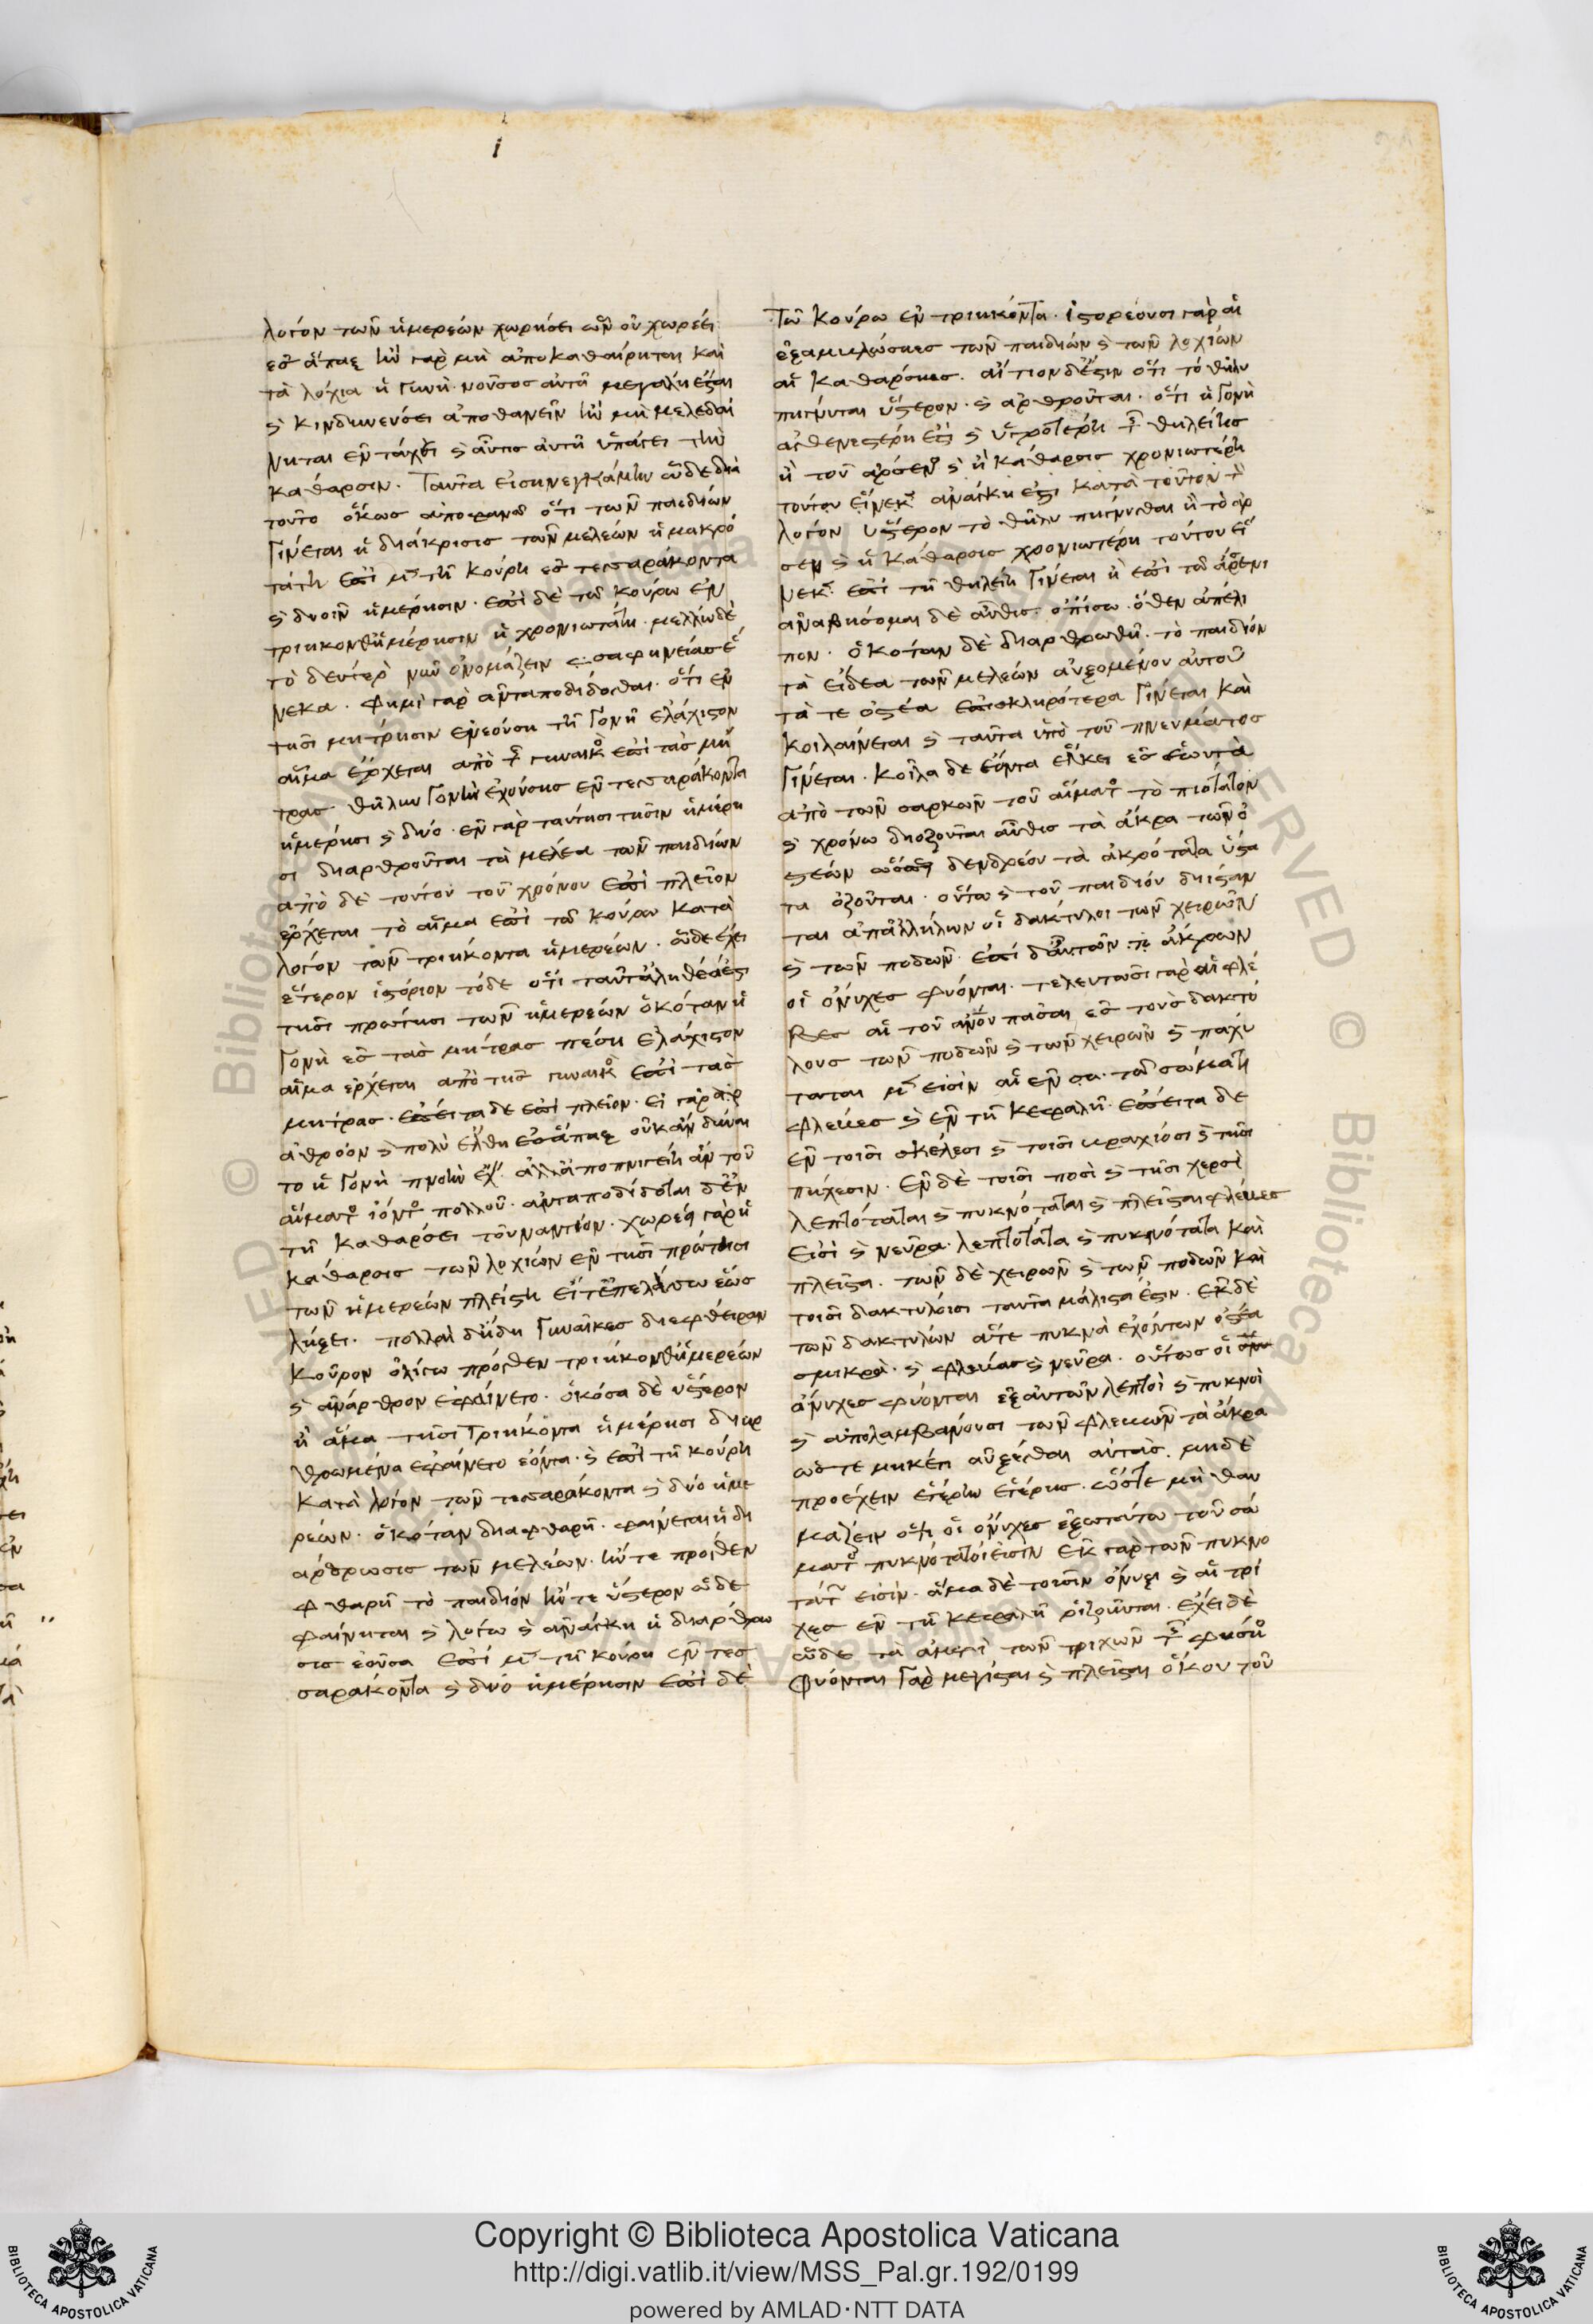 λόγον τῶν ἡμερέων χωρήσει ὧν οὐ χωρέει
ἐς ἅπαξ ἢν γὰρ μὴ ἀποκαθαίρηται καὶ
τὰ λόχια ἡ γυνὴ νοῦσος αὐτῇ μεγάλη ἔσται
καὶ κινδυνεύσει ἀποθανεῖν ἢν μὴ μελεδαί
νηται ἐν τάχει καὶ αὐτις αὐτῇ ὑπάγει τὴν
κάθαρσιν. ταῦτα εἰσηνεγκάμην ὧδε διὰ
τοῦτο ὅκως ἀποφανῶ ὅτι τῶν παιδίων
γίνεται ἡ διάκρισις τῶν μελέων ἡ μακρο
τάτη ἐπὶ μὲν τῇ κούρῃ ἐς τεσσαράκοντα
καὶ δυοῖν ἡμέρῃσιν. ἐπὶ δὲ τῷ κούρῳ ἐν
τριήκονθ' ἡμέρῃσιν ἡ χρονιωτάτη. μέλλω δὲ
τὸ δεύτερον νῦν ὀνομάζειν σαφηνείας εἵ
νεκα. φημὶ γὰρ ἀνταποδίδοσθαι. ὅτι ἐν
τῇσι μήτρῃσιν ἐνεούσῃ τῇ γονῇ ἐλάχιστον
αἷμα ἔρχεται ἀπὸ τῆς γυναικὸς ἐπὶ τὰς μή
τρας. θῆλυν γονὴν ἐχούσης ἐν τεσσαράκοντα
ἡμέρῃσι καὶ δύο. ἐν γὰρ ταύτῃσι τῇσιν ἡμέρῃ
σι διαρθροῦται τὰ μέλεα τῶν παιδίων
ἀπὸ δὲ τούτου τοῦ χρόνου ἐπὶ πλεῖον
ἔρχεται τὸ αἷμα ἐπὶ τῷ κούρῳ κατὰ
λόγον τῶν τριήκοντα ἡμερέων. ὧδε ἔχει
ἕτερον ἱστόριον τόδε ὅτι ταῦτ' ἀληθέα ἐστι
τῇσι πρώτῃσι τῶν ἡμερέων ὁκόταν ἡ
γονὴ ἐς τὰς μήτρας πέσῃ ἐλάχιστον
αἷμα ἔρχεται ἀπὸ τῆς γυναικὸς ἐπὶ τὰς
μήτρας. ἔπειτα δὲ ἐπὶ πλεῖον. εἰ γὰρ
ἀθρόον καὶ πολὺ ἔλθῃ ἐσάπαξ οὐκ ἂν δύναι
το ἡ γονὴ πνοὴν ἔχειν. ἀλλ' ἀποπνιγείη ἂν τοῦ
αἵματος ἰόντος πολλοῦ. ἀνταποδίδοται δ' ἐν
τῇ καθάρσει τοὐναντίον. χωρέει γὰρ ἡ
κάθαρσις τῶν λοχίων ἐν τῇσι πρώτῃσι
τῶν ἡμερέων πλείστη εἶτ' ἐπ' ἐλάσσω ἕως
λήξει. πολλαὶ δ' ἤδη γυναῖκες διέφθειραν
κοῦρον ὀλίγῳ πρόσθεν τριήκονθ' ἡμερέων
καὶ ἄναρθρον ἐφαίνετο. ὁκόσα δὲ ὕστερον
ἢ ἅμα τῇσι τριήκοντα ἡμέρῃσι διηρ
θρωμένα ἐφαίνετο ἐόντα. καὶ ἐπὶ τῇ κούρῃ
κατὰ λόγον τῶν τεσσαράκοντα καὶ δύο ἡμε
ρέων. ὁκόταν διαφθαρῇ. φαίνεται ἡ δι
άρθρωσις τῶν μελέων. ἤν τε πρόσθεν
φθαρῇ τὸ παιδίον ἤν τε ὕστερον ὧδε
φαίνηται καὶ λόγῳ καὶ ἀνάγκῃ ἡ διάρθρω
σις ἐοῦσα ἐπὶ μὲν τῇ κούρῃ ἐν τεσ
σαράκοντα καὶ δύο ἡμέρῃσιν ἐπὶ δὲ
τῷ κούρῳ ἐν τριήκοντα. ἱστορέουσι γὰρ αἱ
ἐξαμβλώσιες τῶν παιδίων καὶ τῶν λοχίων
αἱ καθάρσιες. αἴτιον δέ ἐστιν ὅτι τὸ θῆλυ
πήγνυται ὕστερον. καὶ ἀρθροῦται. ὅτι ἡ γονὴ
ἀσθενεστέρη ἐστὶ καὶ ὑγροτέρη τῆς θηλείης
ἢ τοῦ ἄρσενος καὶ ἡ κάθαρσις χρονιωτέρη
τούτου εἵνεκεν ἀνάγκη ἐστι κατὰ τοῦτον τὸν
λόγον ὕστερον τὸ θῆλυ πήγνυσθαι ἢ τὸ ἄρ
σεν καὶ ἡ κάθαρσις χρονιωτέρη τούτου εἵ
νεκεν ἐπὶ τῇ θηλείῃ γίνεται ἢ ἐπὶ τῷ ἄρσενι
ἀναβήσομαι δὲ αὖθις ὀπίσω. ὅθεν ἀπέλι
πον. ὁκόταν δὲ διαρθρωθῇ. τὸ παιδίον
τὰ εἴδεα τῶν μελέων αὐξομένου αὐτοῦ
τά τε ὀστέα ἐπισκληρότερα γίνεται καὶ
κοιλαίνεται καὶ ταῦτα ὑπὸ τοῦ πνεύματος
γίνεται. κοῖλα δὲ ἐόντα ἕλκει ἐς ἑωυτὰ
ἀπὸ τῶν σαρκῶν τοῦ αἵματος τὸ πιότατον
καὶ χρόνῳ διοζοῦται αὖθις τὰ ἄκρα τῶν ὀ
στέων ὥσπερ δενδρέου τὰ ἀκρότατα ὕστα
τα ὀζοῦται. οὕτω καὶ τοῦ παιδίου διίσταν
ται ἀπ' ἀλλήλων οἱ δάκτυλοι τῶν χειρῶν
καὶ τῶν ποδῶν. ἐπὶ δ' αὐτῶν τῶν ἄκρων
οἱ ὄνυχες φύονται. τελευτῶσι γὰρ αἱ φλέ
βες αἱ τοῦ ἀνου πᾶσαι ἐς τοὺς δακτύ
λους τῶν ποδῶν καὶ τῶν χειρῶν καὶ παχύ
ταται μέν εἰσὶν αἱ ἐν τῷ σώματι
φλέβες καὶ ἐν τῇ κεφαλῇ. ἔπειτα δὲ
ἐν τοῖσι σκέλεσι καὶ τοῖσι βραχίοσι καὶ τῇσι
πήχεσιν. ἐν δὲ τοῖσι ποσὶ καὶ τῇσι χερσὶ
λεπτόταται καὶ πυκνόταται καὶ πλεῖσται φλέβες
εἰσὶ καὶ νεῦρα. λεπτότατα καὶ πυκνότατα καὶ
πλεῖστα. τῶν δὲ χειρῶν καὶ τῶν ποδῶν καὶ
τοῖσι δακτύλοισι ταῦτα μάλιστά ἐστιν. ἐκ δὲ
τῶν δακτύλων ἅτε πυκνὰ ἐχόντων ὀστέα
σμικρὰ. καὶ φλέβας καὶ νεῦρα. οὕτως οἱ
ὄνυχες φύονται ἐξ αὐτῶν λεπτοὶ καὶ πυκνοὶ
καὶ ἀπολαμβάνουσι τῶν φλεβῶν τὰ ἄκρα
ὥστε μηκέτι αὔξεσθαι αὐτὰς. μηδὲ
προέχειν ἑτέρην ἑτέρης. ὥστε μὴ θαυ
μάζειν ὅτι οἱ ὄνυχες ἐξωτάτω τοῦ σώ
ματος πυκνότατοί εἰσὶν ἐκ γὰρ τῶν πυκνο
τάτων εἰσίν. ἅμα δὲ τοῖσιν ὄνυξι καὶ αἱ τρί
χες ἐν τῇ κεφαλῇ ῥιζοῦνται. ἔχει δὲ
ὧδε τὰ ἀμφὶ τῶν τριχῶν τῆς φύσιος
φύονται γὰρ μέγισται καὶ πλεῖσται ὅκου τοῦ
Copyright © Biblioteca Apostolica Vaticana
http://digi.vatlib.it/view/MSS_Pal.gr.192/0199
powered by AMLAD·NTT DATA
BIBLIOTECA APOSTOLICA VATICANA
BIBLIOTECA APOSTOLICA VATICANA